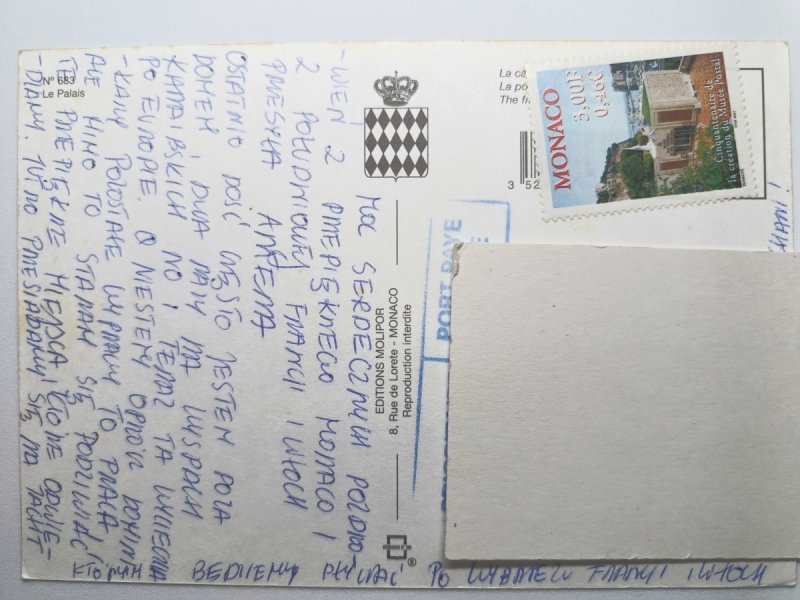 N° 683
Le Palais
La ca
La po
The fr
3 52
MONACO
3,00F
0,46€
Cinquantenaire de
la création du Musée Postal
PORT PAYE
EDITIONS MOLIPOR
8, Rue de Lorete - MONACO
Reproduction interdite
®
MOC SERDECZNYCH POZDRO
-WIEŃ Z PRZEPIĘKNEGO MONACO I
Z POŁUDNIOWEJ FRANCJI I WŁOCH
PRZESYŁA
OSTATNIO DOŚĆ CZĘSTO JESTEM POZA
DOMEM I DWA RAZY NA WYSPACH
KARAIBSKICH NO I TERAZ TA WYCIECZKA
PO EUROPIE. O NIESTETY OPRÓCZ DOMIN
-KANY POZOSTAŁE WYPRAWY TO PRACA
ALE MIMO TO STARAM SIĘ PODZIWIAĆ
TE PRZEPIĘKNE MIEJSCA, KTÓRE ODWIE-
-DZAMY. JUTRO PRZESIADAMY SIĘ NA YACHT
KTÓRYM BĘDZIEMY PŁYWAĆ PO WYBRZEŻU FRANCJI I WŁOCH